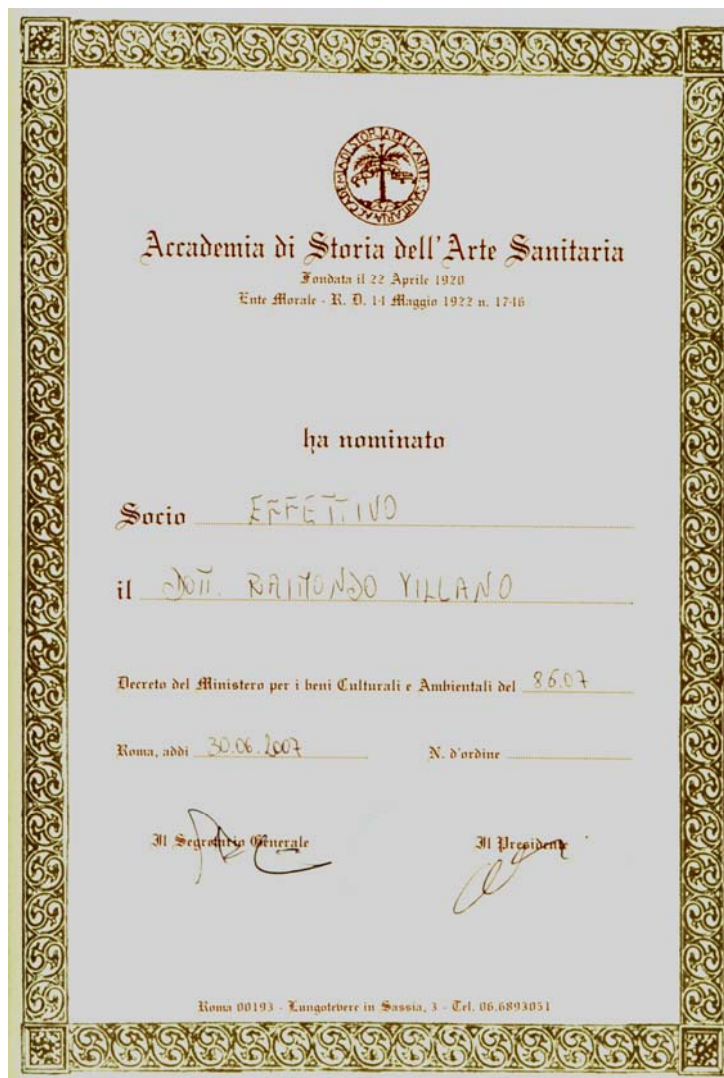 ACCADEMIA DI STORIA DELL'ARTE SANITARIA
Accademia di Storia dell'Arte Sanitaria
Fondata il 22 Aprile 1920
Ente Morale - R. D. 14 Maggio 1922 n. 1746
ha nominato
Socio EFFETTIVO
il DOTT. RAIMONDO VILLANO
Decreto del Ministero per i beni Culturali e Ambientali del 8.6.07
Roma, addi 30.06.2007 N. d'ordine
Il Segretario Generale Il Presidente
Roma 00193 - Lungotevere in Sassia, 3 - Tel. 06.6893051